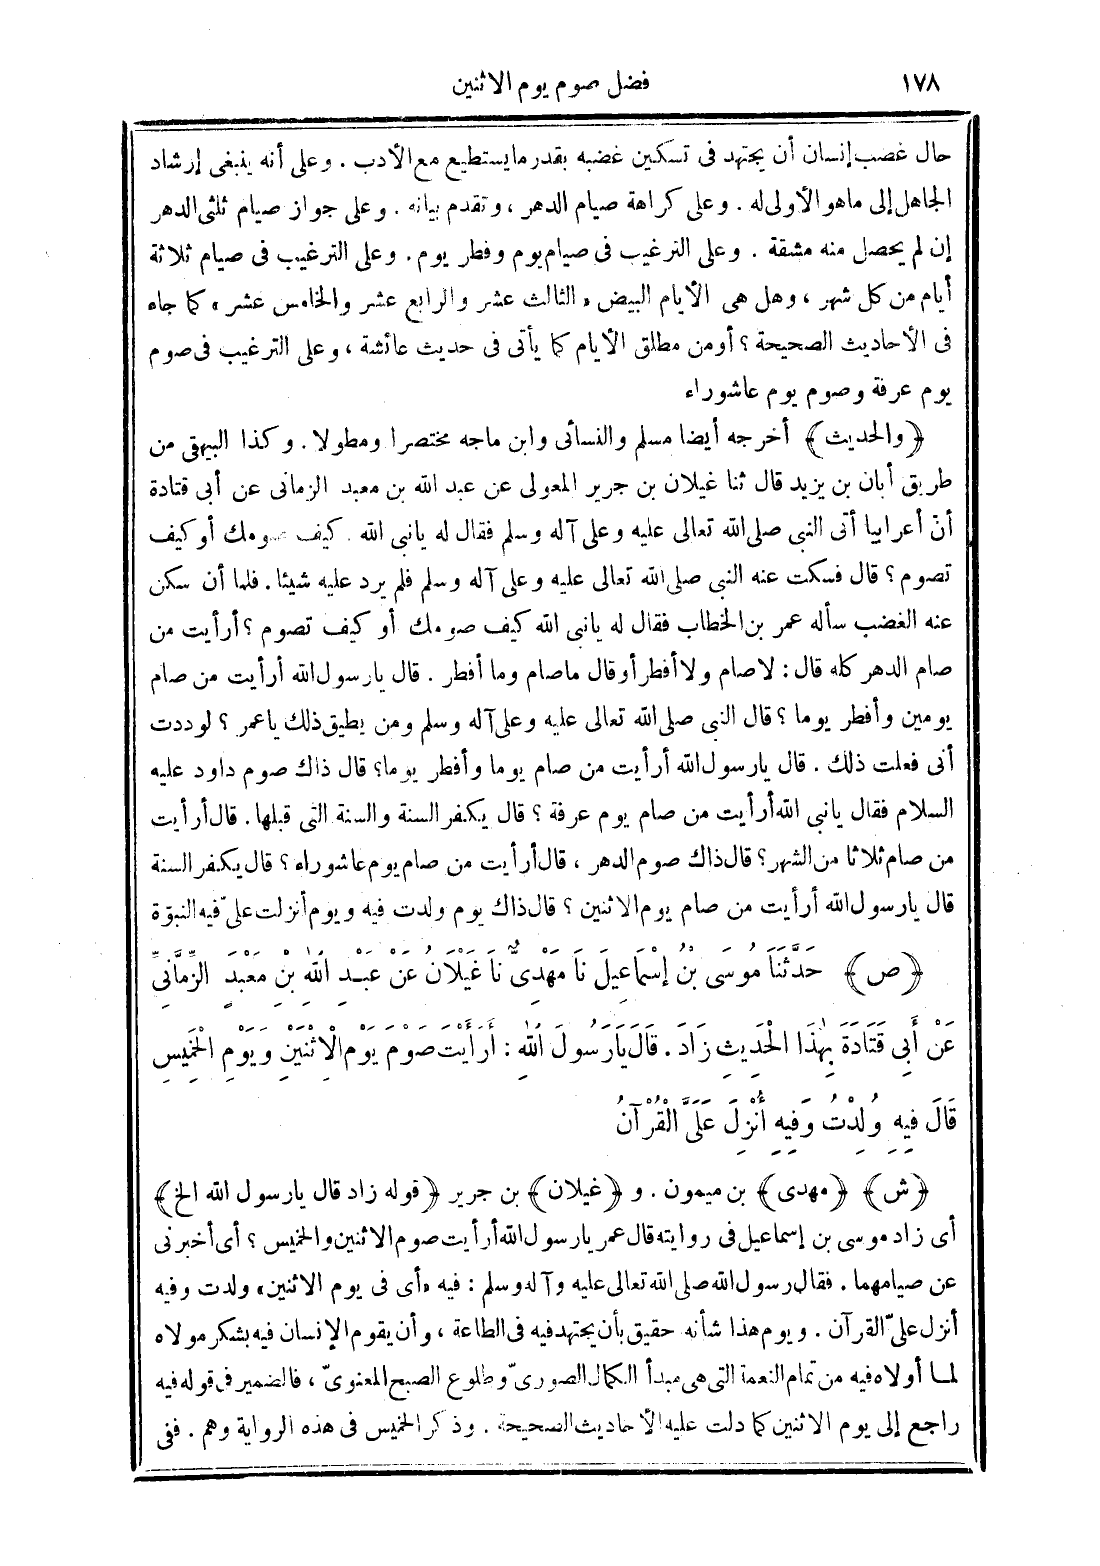 ١٧٨
فضل صوم يوم الاثنين
حال غضب إنسان أن يجتهد فى تسكين غضبه بقدر ما يستطيع مع الأدب . وعلى أنه ينبغى إرشاد
الجاهل إلى ما هو الأولى له . وعلى كراهة صيام الدهر ، وتقدم بيانه . وعلى جواز صيام ثلثى الدهر
إن لم يحصل منه مشقة . وعلى الترغيب فى صيام يوم وفطر يوم . وعلى الترغيب فى صيام ثلاثة
أيام من كل شهر ، وهل هى الأيام البيض «الثالث عشر والرابع عشر والخامس عشر» كما جاء
فى الأحاديث الصحيحة ؟ أو من مطلق الأيام كما يأتى فى حديث عائشة ، وعلى الترغيب فى صوم
يوم عرفة وصوم يوم عاشوراء
﴿والحديث﴾ أخرجه أيضا مسلم والنسائى وابن ماجه مختصرا ومطولا . وكذا البيهقى من
طريق أبان بن يزيد قال ثنا غيلان بن جرير المعولى عن عبد الله بن معبد الزمانى عن أبى قتادة
أنّ أعرابيا أتى النبى صلى الله تعالى عليه وعلى آله وسلم فقال له يا نبى الله كيف صومك أو كيف
تصوم ؟ قال فسكت عنه النبى صلى الله تعالى عليه وعلى آله وسلم فلم يرد عليه شيئا . فلما أن سكن
عنه الغضب سأله عمر بن الخطاب فقال له يا نبى الله كيف صومك أو كيف تصوم ؟ أرأيت من
صام الدهر كله قال : لا صام ولا أفطر أو قال ما صام وما أفطر . قال يا رسول الله أرأيت من صام
يومين وأفطر يوما ؟ قال النبى صلى الله تعالى عليه وعلى آله وسلم ومن يطيق ذلك يا عمر ؟ لوددت
أنى فعلت ذلك . قال يا رسول الله أرأيت من صام يوما وأفطر يوما؟ قال ذاك صوم داود عليه
السلام فقال يا نبى الله أرأيت من صام يوم عرفة ؟ قال يكفر السنة والسنة التى قبلها . قال أرأيت
من صام ثلاثا من الشهر؟ قال ذاك صوم الدهر ، قال أرأيت من صام يوم عاشوراء ؟ قال يكفر السنة
قال يا رسول الله أرأيت من صام يوم الاثنين ؟ قال ذاك يوم ولدت فيه ويوم أنزلت علىّ فيه النبوّة
﴿ص﴾ حَدَّثَنَا مُوسَى بْنُ إِسْمَاعِيلَ نَا مَهْدِىٌّ نَا غَيْلَانُ عَنْ عَبْدِ اللهِ بْنِ مَعْبَدٍ الزِّمَّانِىِّ
عَنْ أَبِى قَتَادَةَ بِهَذَا الْحَدِيثِ زَادَ . قَالَ يَا رَسُولَ اللهِ : أَرَأَيْتَ صَوْمَ يَوْمِ الْاِثْنَيْنِ وَيَوْمِ الْخَمِيسِ
قَالَ فِيهِ وُلِدْتُ وَفِيهِ أُنْزِلَ عَلَىَّ الْقُرْآنُ
﴿ش﴾ ﴿مهدى﴾ بن ميمون . و ﴿غيلان﴾ بن جرير ﴿قوله زاد قال يا رسول الله الخ﴾
أى زاد موسى بن إسماعيل فى روايته قال عمر يا رسول الله أرأيت صوم الاثنين والخميس ؟ أى أخبرنى
عن صيامهما . فقال رسول الله صلى الله تعالى عليه وآله وسلم : فيه «أى فى يوم الاثنين» ولدت وفيه
أنزل علىّ القرآن . ويوم هذا شأنه حقيق بأن يجتهد فيه فى الطاعة ، وأن يقوم الإنسان فيه بشكر مولاه
لما أولاه فيه من تمام النعمة التى هى مبدأ الكمال الصورىّ وطلوع الصبح المعنوىّ ، فالضمير فى قوله فيه
راجع إلى يوم الاثنين كما دلت عليه الأحاديث الصحيحة . وذكر الخميس فى هذه الرواية وهم . ففى